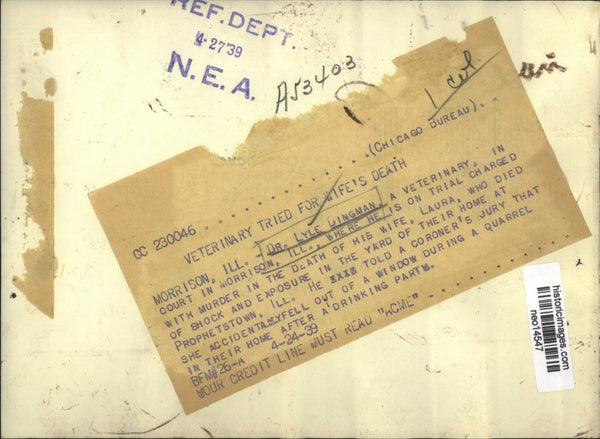 REF. DEPT.
4-27'39
N.E.A.
A53403
1 col.
(CHICAGO BUREAU)..
CC 230046 . . . . . . . . . . . . . . . . . .
VETERINARY TRIED FOR WIFE'S DEATH
MORRISON, ILL. - DR. LYLE DINGMAN, A VETERINARY, IN
COURT IN MORRISON, ILL., WHERE HE IS ON TRIAL CHARGED
WITH MURDER IN THE DEATH OF HIS WIFE, LAURA, WHO DIED
OF SHOCK AND EXPOSURE IN THE YARD OF THEIR HOME AT
PROPHETSTOWN, ILL. HE XXXX TOLD A CORONER'S JURY THAT
SHE ACCIDENTALLYFELL OUT OF A WINDOW DURING A QUARREL
IN THEIR HOME AFTER A DRINKING PARTY.
BFM#26-A 4-24-39
YOUR CREDIT LINE MUST READ "ACME"
historicimages.com
neo14547